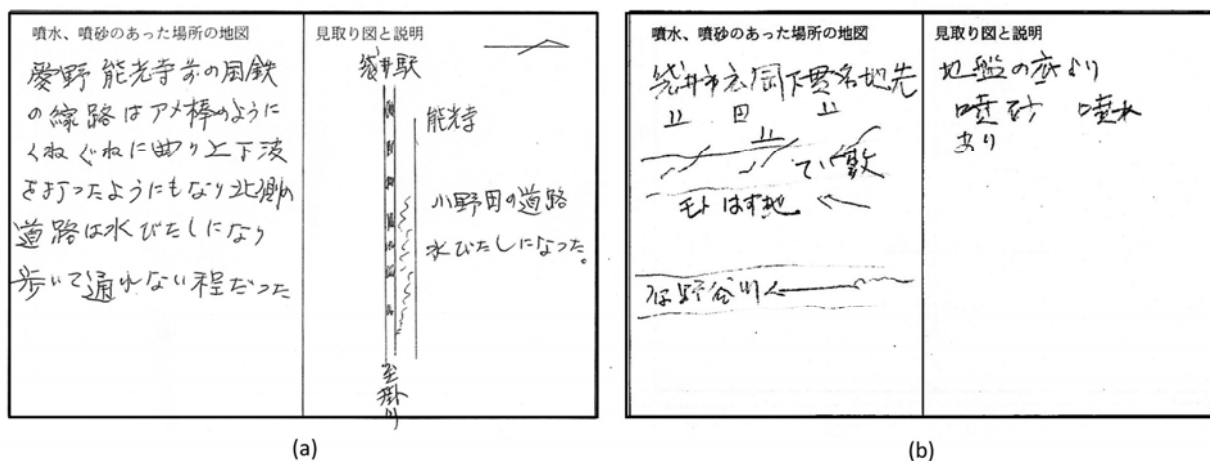 噴水、噴砂のあった場所の地図
愛野 能光寺前の国鉄
の線路はアメ棒のように
くねぐねに曲り上下波
を打ったようにもなり北側の
道路は水びたしになり
歩いて通れない程だった
見取り図と説明
袋井駅
能光寺
小野田の道路
水びたしになった。
至掛川
(a)
噴水、噴砂のあった場所の地図
袋井市広岡下貫名地先
田
てい敷
モト はす池
原野谷川
見取り図と説明
地盤の底より
噴砂 噴水
あり
(b)